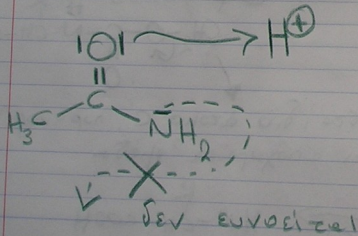 |O| H⊕
||
H₃C C N̄H₂
X
δεν ευνοείται